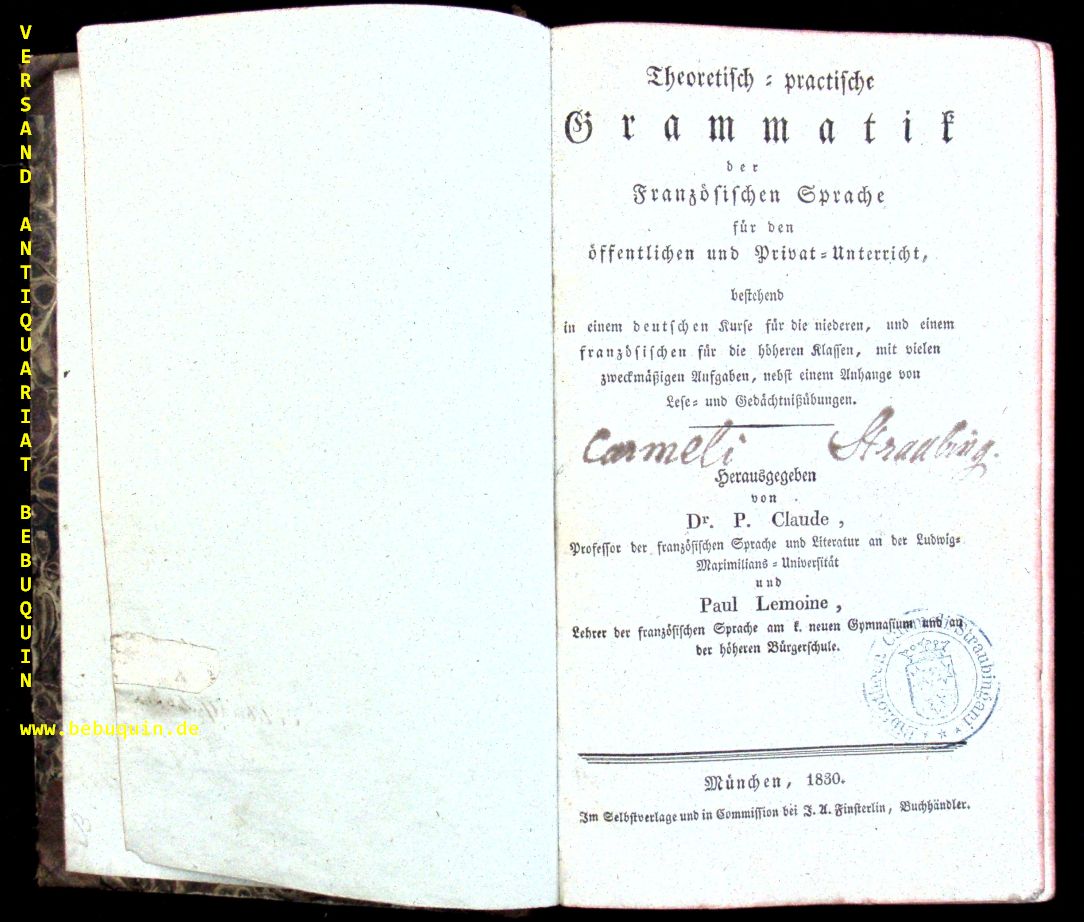 VERSAND ANTIQUARIAT BEBUQUIN
www.bebuquin.de
Theoretisch-practische
Grammatik
der
Französischen Sprache
für den
öffentlichen und Privat-Unterricht,
bestehend
in einem deutschen Kurse für die niederen, und einem
französischen für die höheren Klassen, mit vielen
zweckmäßigen Aufgaben, nebst einem Anhange von
Lese- und Gedächtnißübungen.
Carmeli Straubing.
Herausgegeben
von
Dr. P. Claude,
Professor der französischen Sprache und Literatur an der Ludwig-
Maximilians-Universität
und
Paul Lemoine,
Lehrer der französischen Sprache am k. neuen Gymnasium und an
der höheren Bürgerschule.
Straubingani
München, 1830.
Im Selbstverlage und in Commission bei J. A. Finsterlin, Buchhändler.